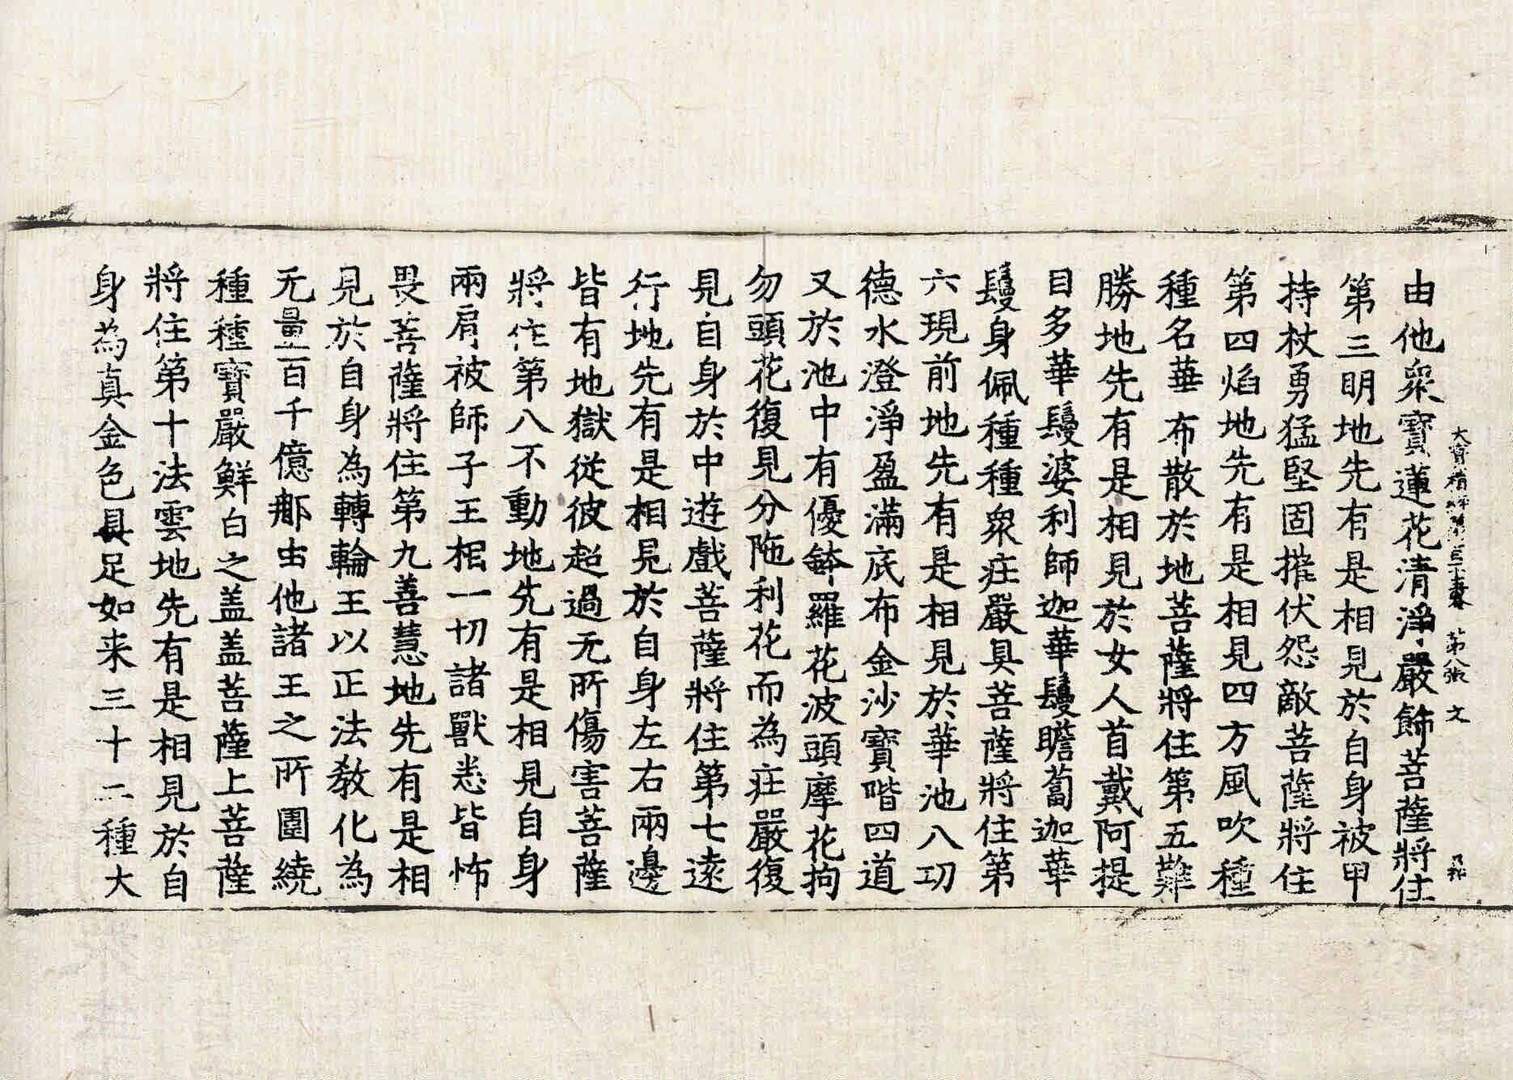 大寶積經第
第八張 文
由他衆寶蓮花清淨嚴飾菩薩將住
第三明地先有是相見於自身被甲
持杖勇猛堅固摧伏怨敵菩薩將住
第四焰地先有是相見四方風吹種
種名華布散於地菩薩將住第五難
勝地先有是相見於女人首戴阿提
目多華鬘婆利師迦華鬘瞻蔔迦華
鬘身佩種種衆庄嚴具菩薩將住第
六現前地先有是相見於華池八功
德水澄淨盈滿底布金沙寶階四道
又於池中有優鉢羅花波頭摩花拘
勿頭花復見分陁利花而為庄嚴復
見自身於中遊戲菩薩將住第七遠
行地先有是相見於自身左右兩邊
皆有地獄從彼超過无所傷害菩薩
將住第八不動地先有是相見自身
兩肩被師子王相一切諸獸悉皆怖
畏菩薩將住第九善慧地先有是相
見於自身為轉輪王以正法教化為
无量百千億那由他諸王之所圍繞
種種寶嚴鮮白之盖盖菩薩上菩薩
將住第十法雲地先有是相見於自
身為真金色具足如来三十二種大